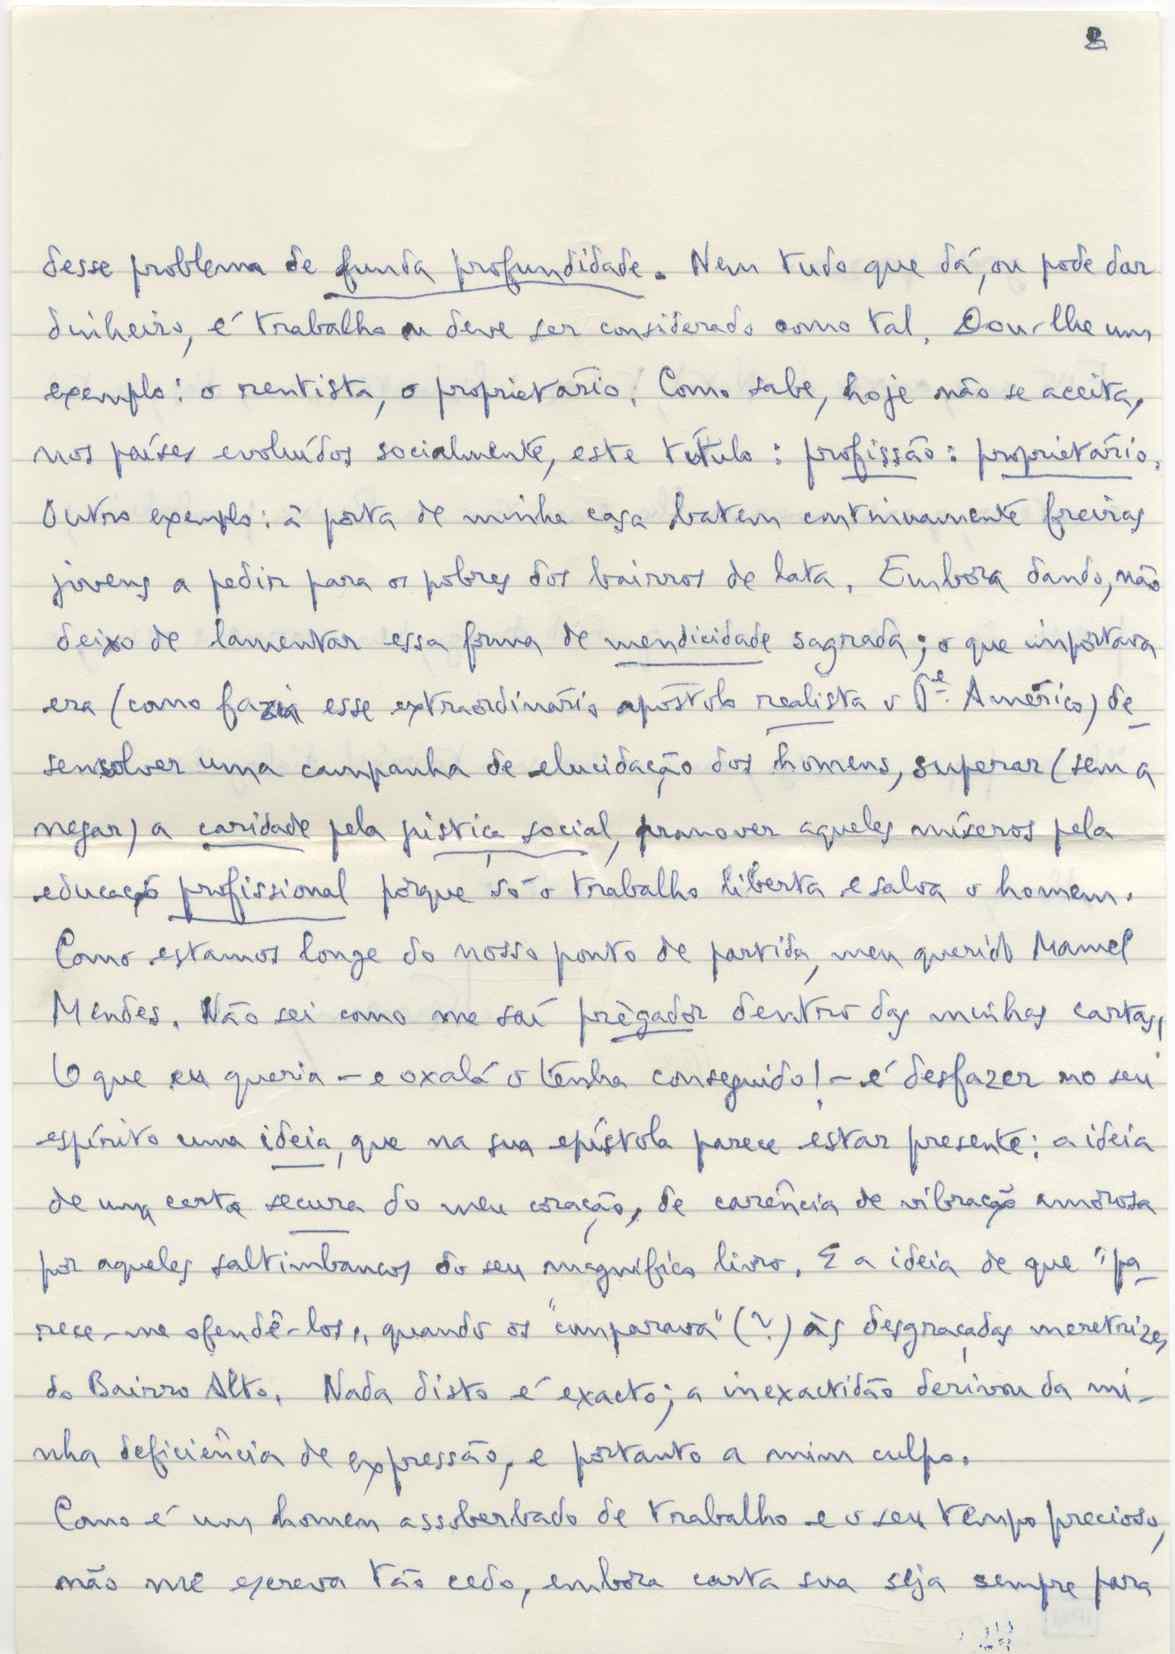 2
desse problema de funda profundidade. Nem tudo que dá, ou pode dar
dinheiro, é trabalho ou deve ser considerado como tal. Dou-lhe um
exemplo: o rentista, o proprietário. Como sabe, hoje não se aceita,
nos países evoluídos socialmente, este título: profissão: proprietário.
Outro exemplo: à porta de minha casa batem continuamente freiras
jovens a pedir para os pobres dos bairros de lata. Embora dando, não
deixo de lamentar essa forma de mendicidade sagrada; o que importava
era (como fazia esse extraordinário apóstolo realista o Pe. Américo) de-
senvolver uma campanha de elucidação dos homens, superar (sem a
negar) a caridade pela justiça social, promover aqueles míseros pela
educação profissional porque só o trabalho liberta e salva o homem.
Como estamos longe do nosso ponto de partida, meu querido Manuel
Mendes. Não sei como me saí prègador dentro das minhas cartas!
O que eu queria – e oxalá o tenha conseguido! – é desfazer no seu
espírito uma ideia, que na sua epístola parece estar presente: a ideia
de uma certa secura do meu coração, de carência de vibração amorosa
por aqueles saltimbancos do seu magnífico livro. E a ideia de que "pa-
rece-me ofendê-los", quando os "comparava" (?) às desgraçadas meretrizes
do Bairro Alto. Nada disto é exacto; a inexactidão derivou da mi-
nha deficiência de expressão, e portanto a mim culpo.
Como é um homem assoberbado de trabalho e o seu tempo precioso,
não me escreva tão cedo, embora carta sua seja sempre para